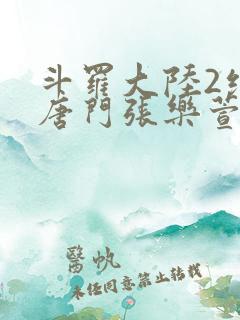 斗羅大陸2
唐門張樂萱
醫帆
未任同意禁止转载